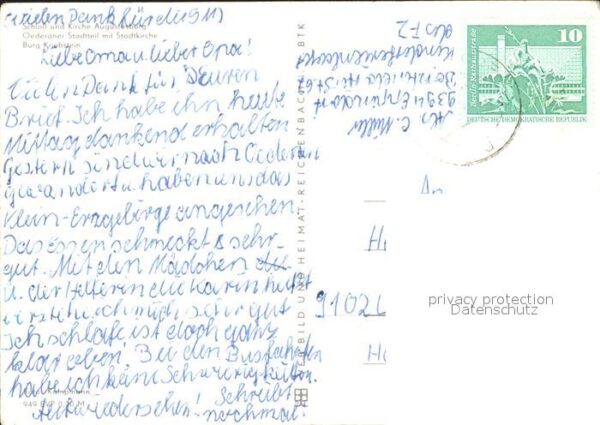 (vielen Dank für die 5M)
Schloß und Kirche Augustusburg
Oederaner Stadtteil mit Stadtkirche
Burg Kriebstein
Liebe Oma u. lieber Opa!
Vielen Dank für Deuren
Brief. Ich habe ihn heute
Mittag dankend erhalten
Gestern sind wir nach Oederan
gewandert u. haben uns das
Klein-Erzgebirge angesehen.
Das Essen schmeckt sehr-
gut. Mit den Mädchen
u. der Helferin die Karin heißt
verstehe ich mich sehr gut
Ich schlafe ist doch ganz
klar oben! Bei den Busfahrten
habe ich keine Schwierigkeiten.
Auf wiedersehen! Schreibt
nochmal!
949 R 0,20 M
BILD UND HEIMAT REICHENBACH BTK
Abs. C. Müller
9391 Erdmannsdorf
Kinderferienlager
10
Berlin-Rathausstraße
DEUTSCHE DEMOKRATISCHE REPUBLIK
An
H
9102
H
privacy protection
Datenschutz